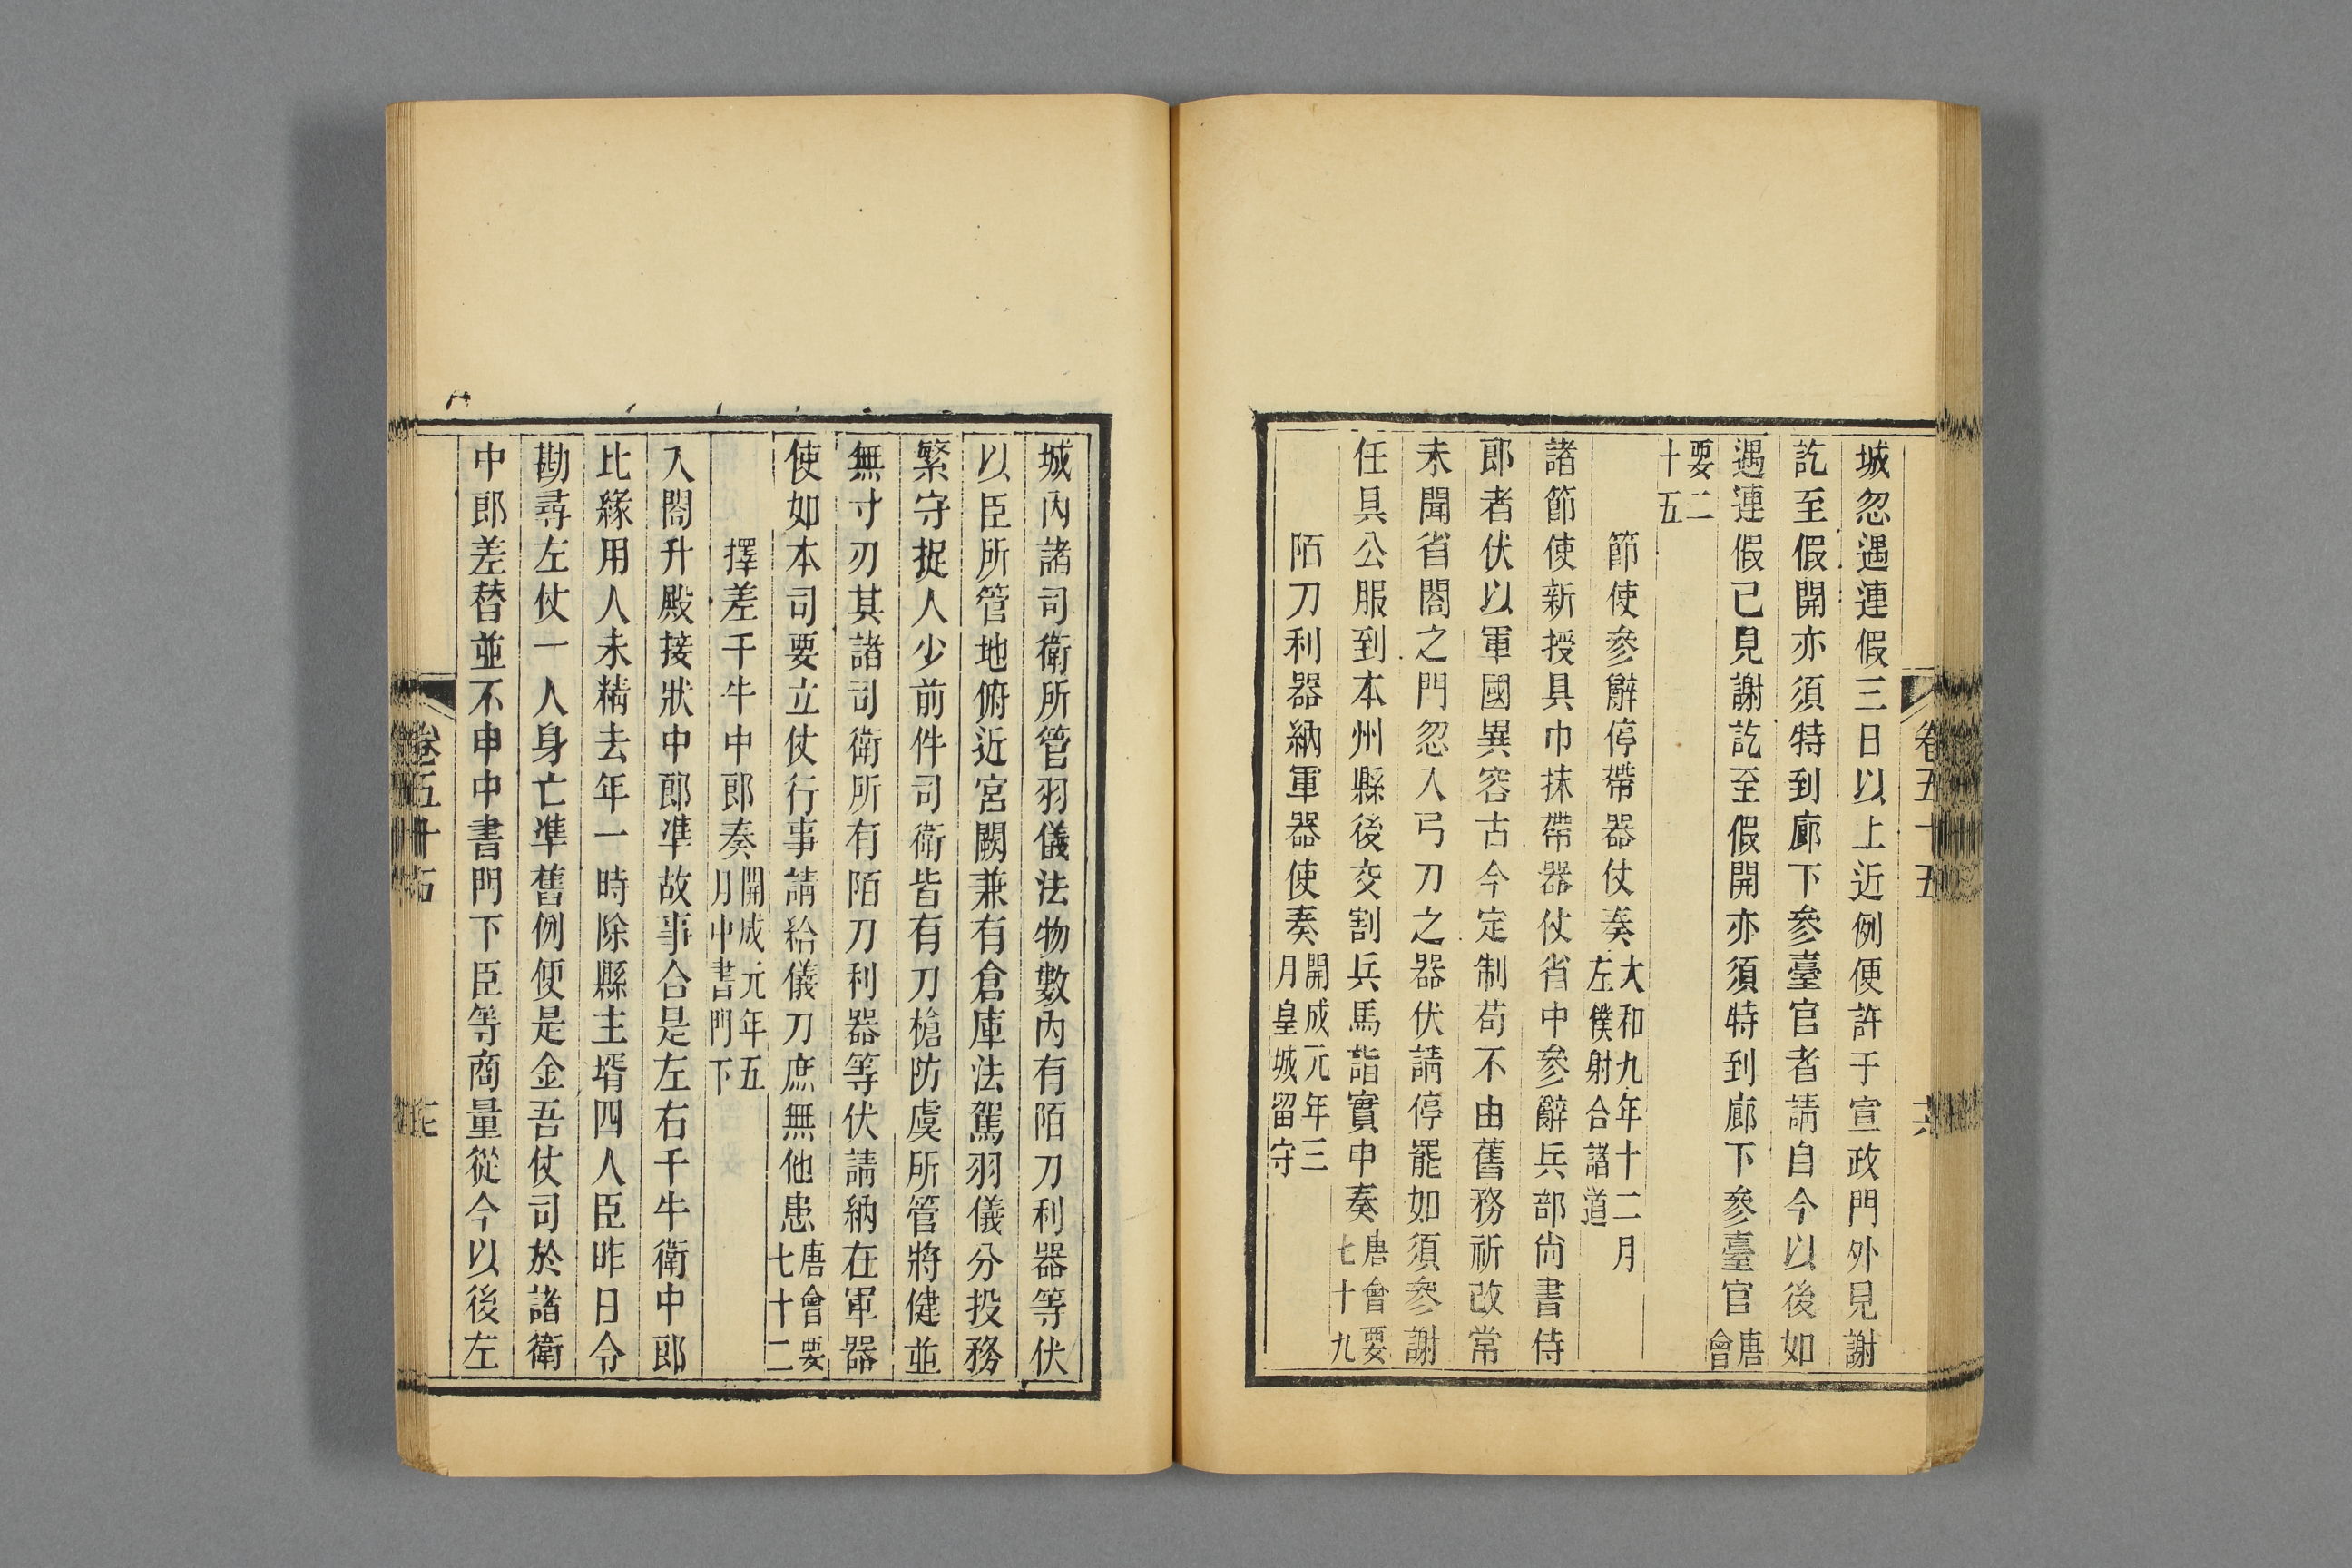 城忽遇連假三日以上近例便許于宣政門外見謝
訖至假開亦須特到廊下參臺官者請自今以後如
遇連假已見謝訖至假開亦須特到廊下參臺官唐會
要二十五
節使參辭停帶器仗奏大和九年十二月左僕射合諸道
諸節使新授具巾抹帶器仗省中參辭兵部尚書侍
郎者伏以軍國異容古今定制苟不由舊務祈改常
未聞省閤之門忽入弓刀之器伏請停罷如須參謝
任具公服到本州縣後交割兵馬詣實申奏唐會要七十九
陌刀利器納軍器使奏開成元年三月皇城留守
卷五十五
六
城內諸司衛所管羽儀法物數內有陌刀利器等伏
以臣所管地俯近宮闕兼有倉庫法駕羽儀分投務
繁守捉人少前件司衛皆有刀槍防虞所管將健並
無寸刃其諸司衛所有陌刀利器等伏請納在軍器
使如本司要立仗行事請給儀刀庶無他患唐會要七十二
擇差千牛中郎奏開成元年五月中書門下
入閤升殿接狀中郎準故事合是左右千牛衛中郎
比緣用人未精去年一時除縣主壻四人臣昨日令
勘尋左仗一人身亡準舊例便是金吾仗司於諸衛
中郎差替並不申中書門下臣等商量從今以後左
卷五十五